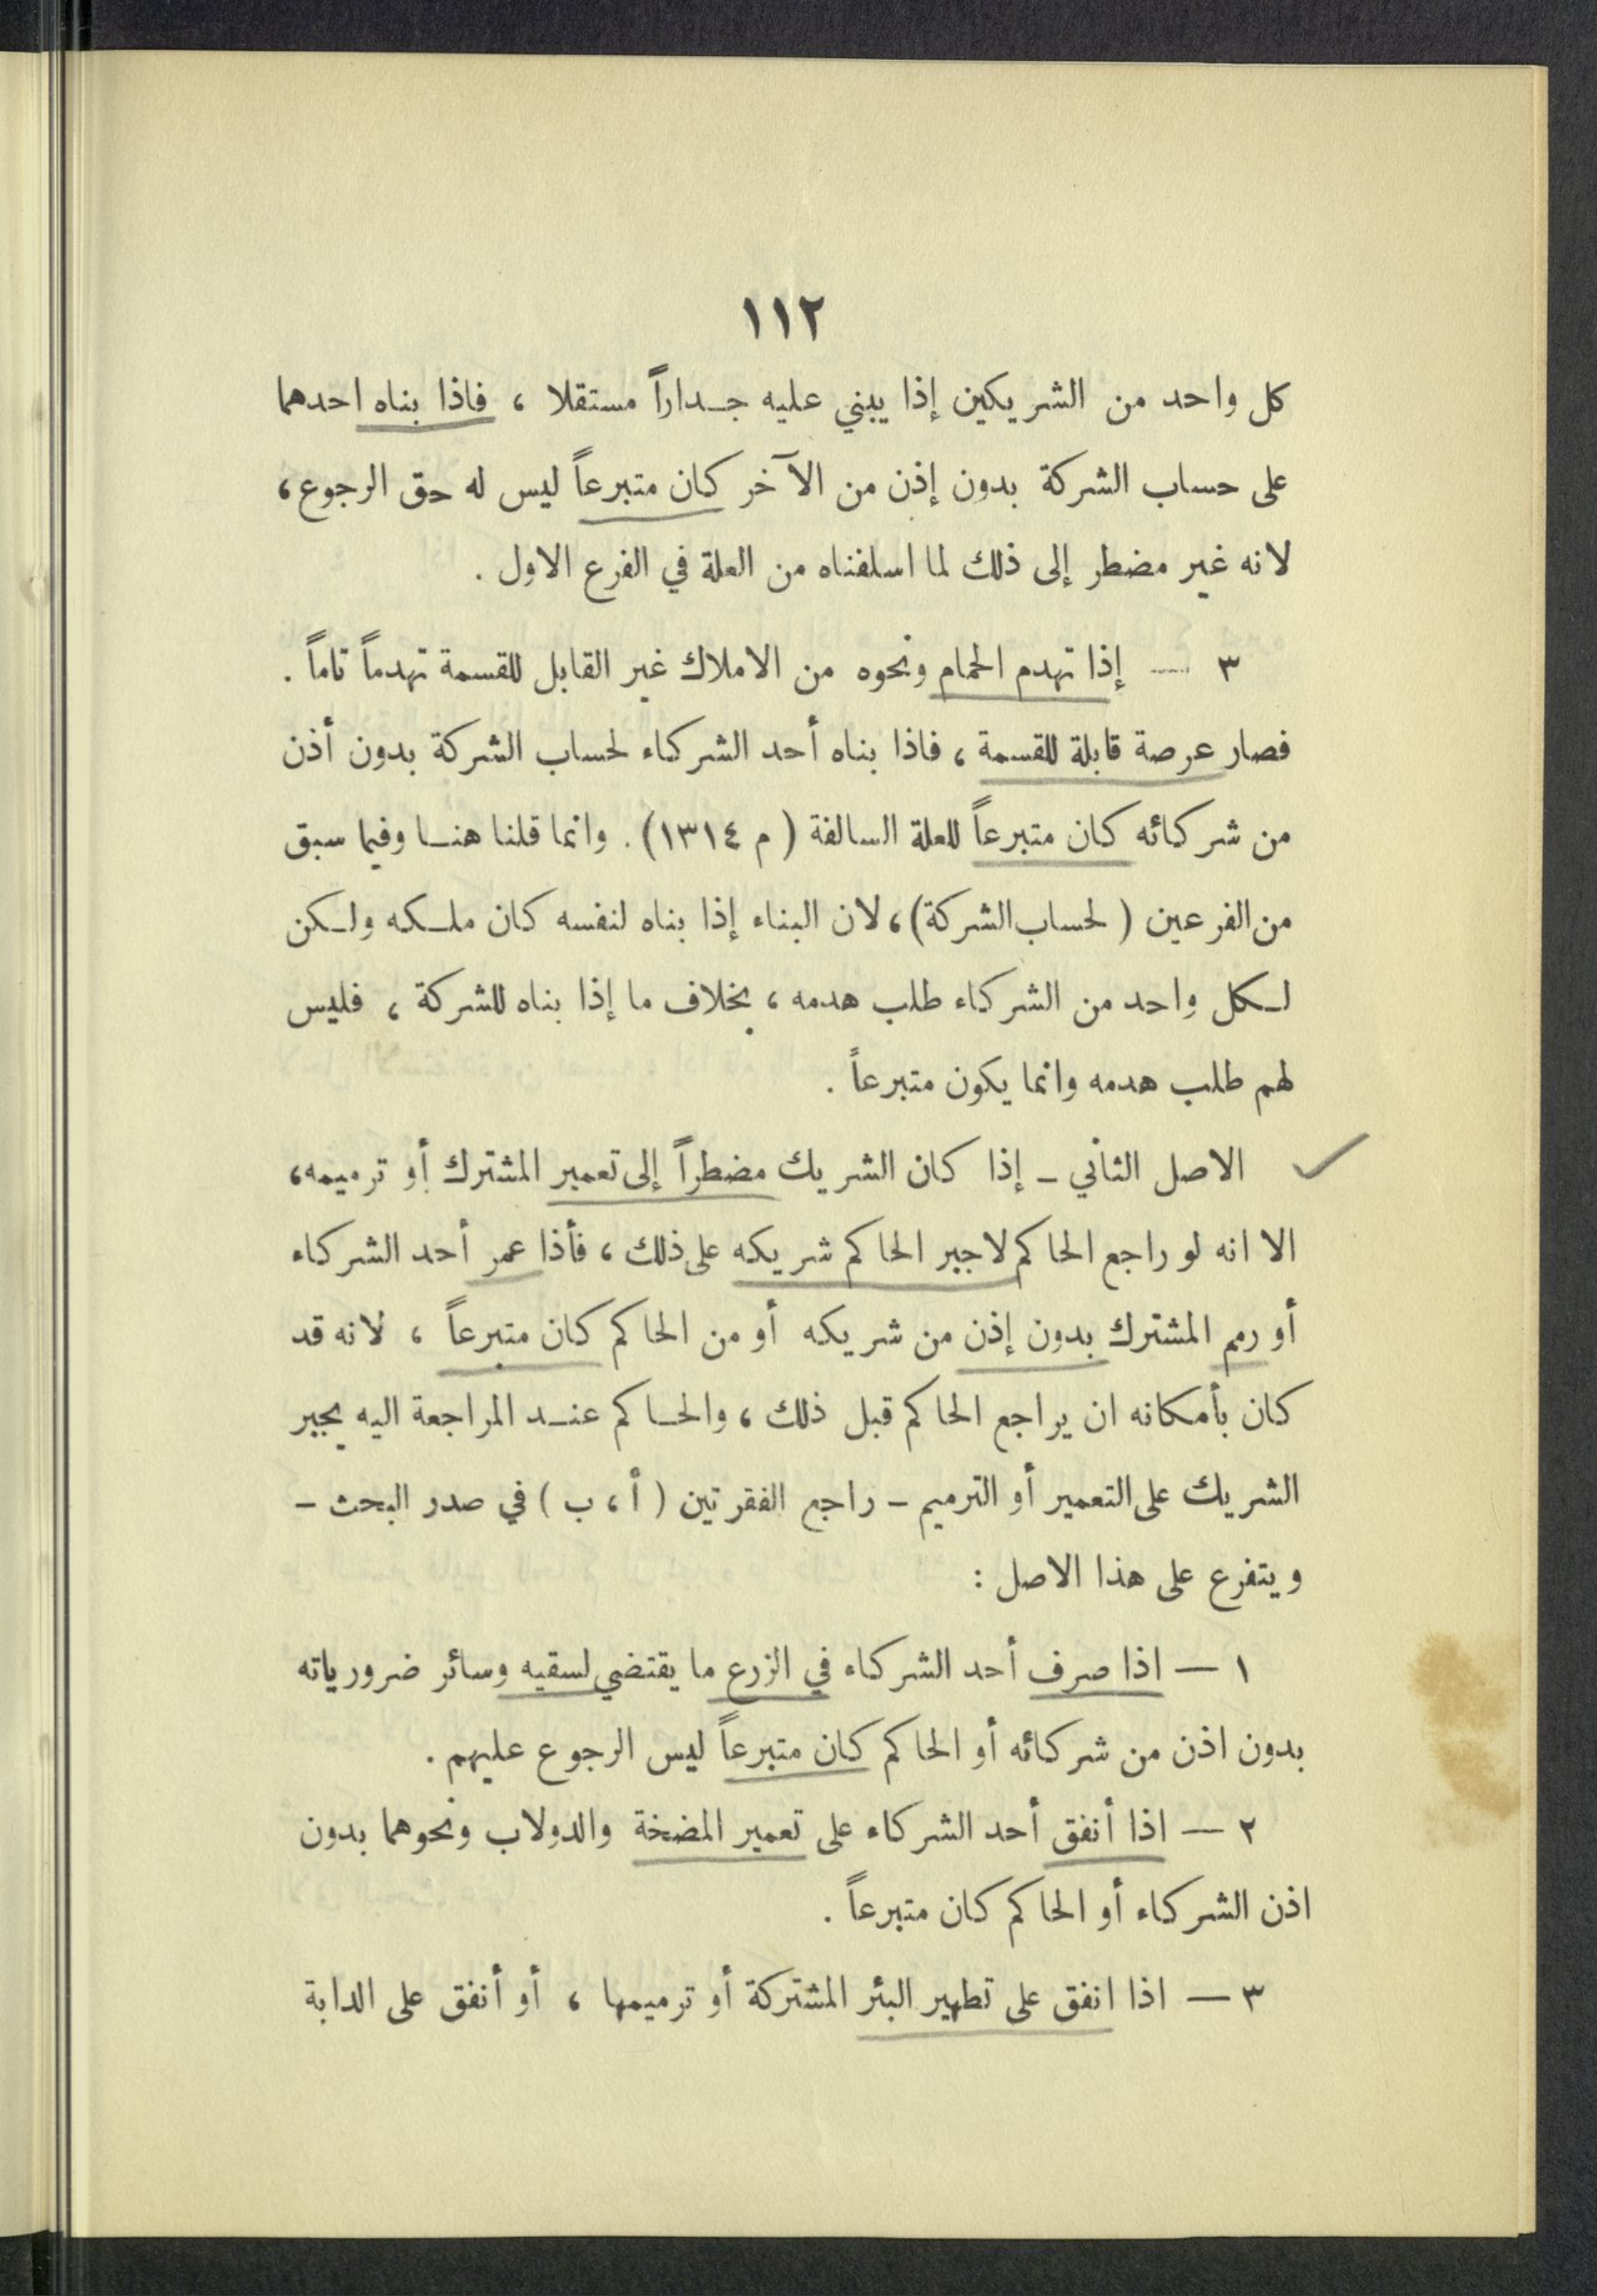 ١١٢
كل واحد من الشريكين إذا يبني عليه جداراً مستقلا ، فاذا بناه احدهما
على حساب الشركة بدون إذن من الآخر كان متبرعاً ليس له حق الرجوع ،
لانه غير مضطر إلى ذلك لما اسلفناه من العلة في الفرع الاول .
٣ — إذا تهدم الحمام ونحوه من الاملاك غير القابل للقسمة تهدماً تاماً .
فصار عرصة قابلة للقسمة ، فاذا بناه أحد الشركاء لحساب الشركة بدون أذن
من شركائه كان متبرعاً للعلة السالفة ( م ١٣١٤) . وانما قلنا هنا وفيما سبق
من الفرعين ( لحساب الشركة) ، لان البناء إذا بناه لنفسه كان ملكه ولكن
لكل واحد من الشركاء طلب هدمه ، بخلاف ما إذا بناه للشركة ، فليس
لهم طلب هدمه وانما يكون متبرعاً .
الاصل الثاني – إذا كان الشريك مضطراً إلى تعمير المشترك أو ترميمه ،
الا انه لو راجع الحاكم لاجبر الحاكم شريكه على ذلك ، فأذا عمر أحد الشركاء
أو رمم المشترك بدون إذن من شريكه أو من الحاكم كان متبرعاً ، لانه قد
كان بأمكانه ان يراجع الحاكم قبل ذلك ، والحاكم عند المراجعة اليه يجبر
الشريك على التعمير أو الترميم – راجع الفقرتين ( أ ، ب ) في صدر البحث –
ويتفرع على هذا الاصل :
١ — اذا صرف أحد الشركاء في الزرع ما يقتضي لسقيه وسائر ضرورياته
بدون اذن من شركائه أو الحاكم كان متبرعاً ليس الرجوع عليهم .
٢ — اذا أنفق أحد الشركاء على تعمير المضخة والدولاب ونحوهما بدون
اذن الشركاء أو الحاكم كان متبرعاً .
٣ — اذا انفق على تطهير البئر المشتركة أو ترميمها ، أو أنفق على الدابة